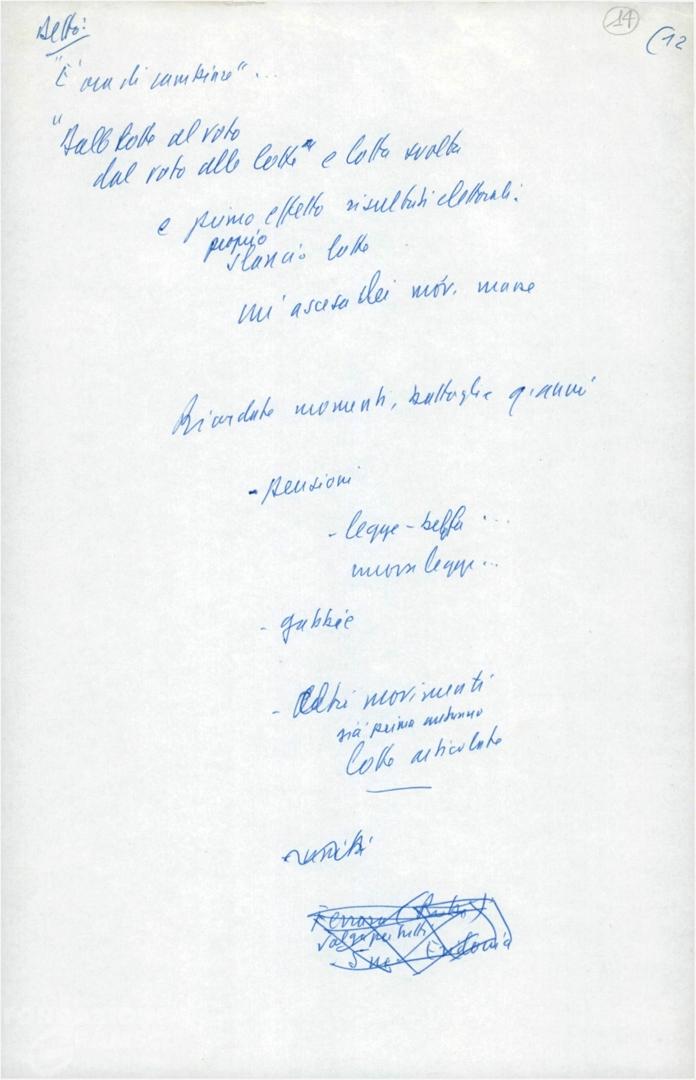 14
(12
Detto:
"È ora di cambiare"...
"Dalle lotte al voto
dal voto alle lotte" e lotta svolta
e primo effetto risultati elettorali:
proprio
slancio lotte
un'ascesa dei mov. masse
Ricordate momenti, battaglie q. anni
- pensioni
- legge-beffa...
nuova legge...
- gabbie
- Altri movimenti
già prima autunno
lotte articolate
unità
valga per tutti